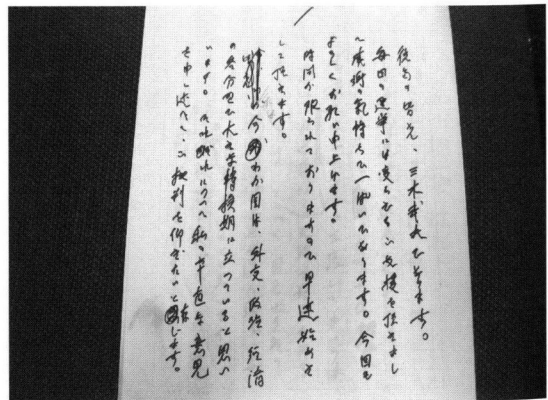 徳島の皆さん、三木武夫でございます。
毎回の選挙には変らぬご支援を頂きまし
て感謝の気持ちで一ぱいであります。今回も
よろしくお願い申上げます。
時間が限られておりますので早速始めさ
して頂きます。
今わが国は、外交、政治、経済
の各分野で大きな転換期に立っていると思い
ます。それぞれについて私の率直な意見
を申し述べて、ご批判を仰ぎたいと存じます。